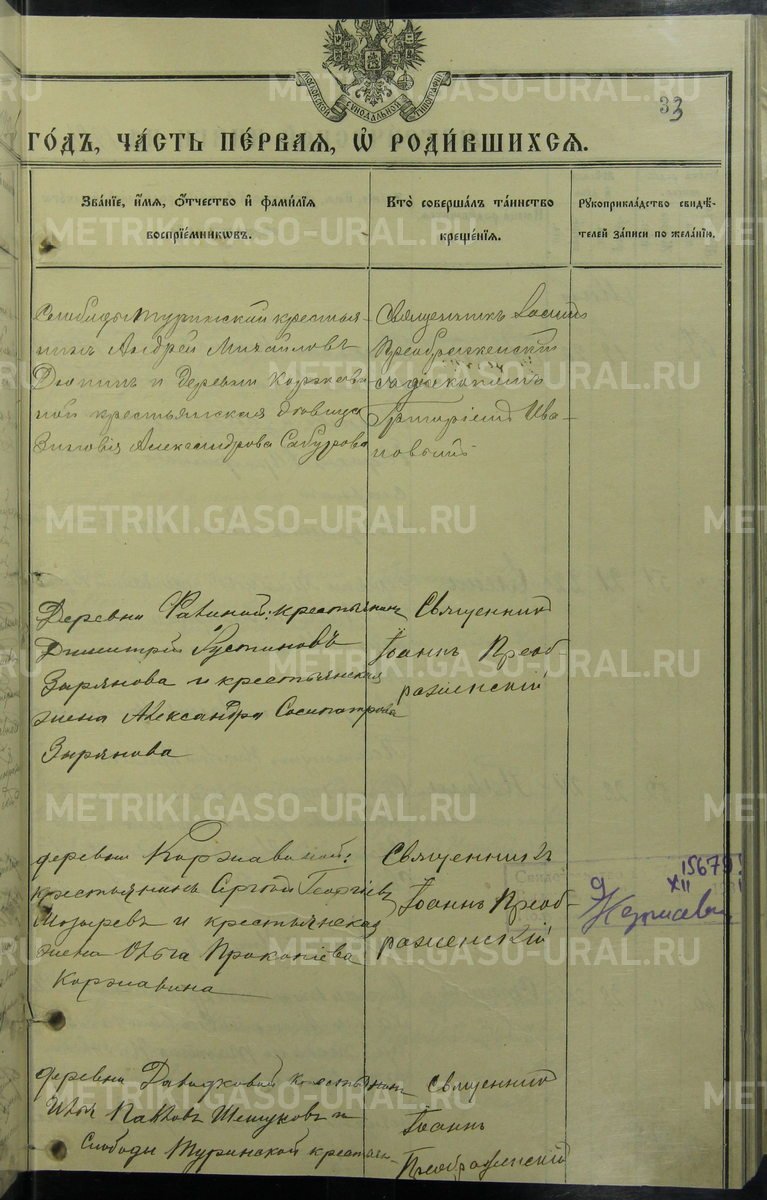 МОСКОВСКОЙ СУНОДАЛЬНОЙ ТИПОГРАФІИ
33
ГО́ДЪ, ЧА́СТЬ ПЕ́РВАЯ, Ѡ РОДИ́ВШИХСЯ.
Зва́нїе, и́мя, ѻ҆́тчество и҆ фами́лїя
воспрїе́мникѡвъ.
Кто̀ соверша́лъ та́инство
креще́нїя.
Рꙋкоприкла́дство свидѣ́-
телей за́писи по жела́нїю.
Слободы Туринской крестья-
нинъ Андрей Михайловъ
и деревни Коржави-
ной крестьянская девица
Зиновія Александрова Сабурова
Священникъ Іоаннъ
Преображенскій
съ діакономъ
Григоріемъ Ива-
новымъ
Деревни крестьянинъ
Димитрій Іустиновъ
Зырянова и крестьянская
жена Александра Сосипатрова
Зырянова
Священникъ
Іоаннъ Преоб-
раженскій
деревни Коржавиной:
крестьянинъ Сергѣй Георгіевъ
Мозыревъ и крестьянская
жена Ольга Прокопіева
Коржавина
Священникъ
Іоаннъ Преоб-
раженскій
15679
XII
деревни Давыдковой крестьянинъ
Илья Павловъ Шешуковъ и
Слободы Туринской крестьян
Священникъ
Іоаннъ
Преображенскій
METRIKI.GASO-URAL.RU